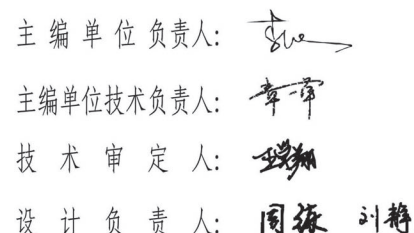 主编单位负责人:
主编单位技术负责人:
技术审定人:
设计负责人: 刘静